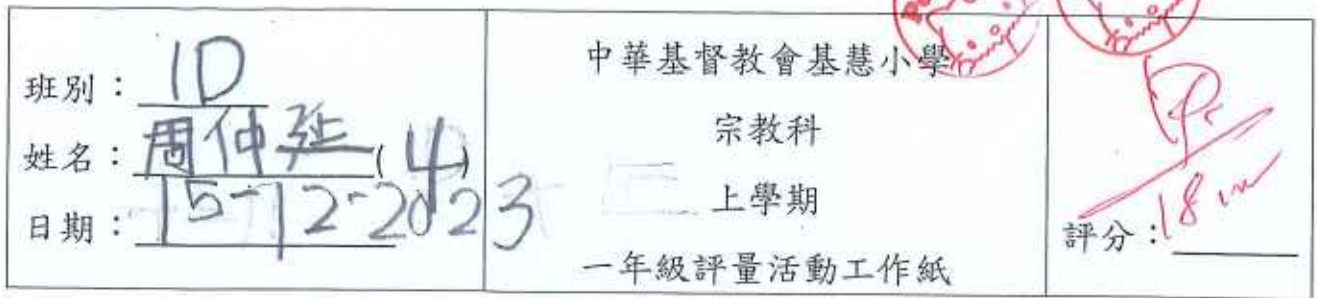 班別：1D
姓名：周仲延(4)
日期：15-12-2023
中華基督教會基慧小學
宗教科
上學期
一年級評量活動工作紙
評分：
18